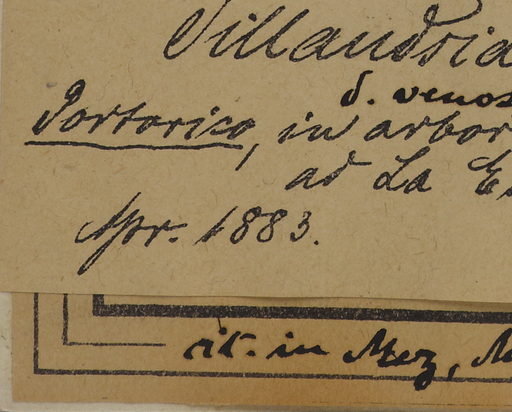 Tillandsia
δ. venos
Portorico, in arbor
ad La E
Apr. 1883.
cit. in Mez, M